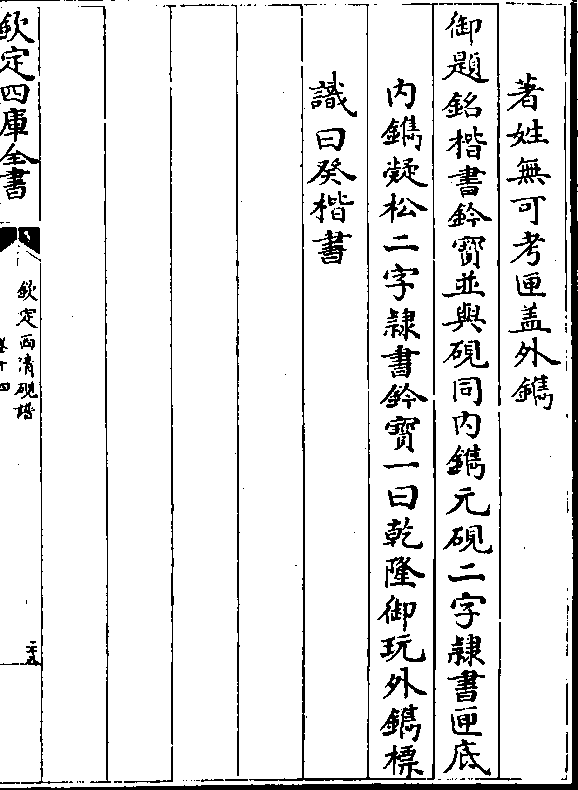 著姓無可考匣盖外鐫
御題銘楷書鈐寳並與硯同内鐫元硯二字隸書匣底
内鐫凝松二字隸書鈐寳一曰乾隆御玩外鐫標
識曰癸楷書
欽定四庫全書
欽定西清硯譜
卷十四